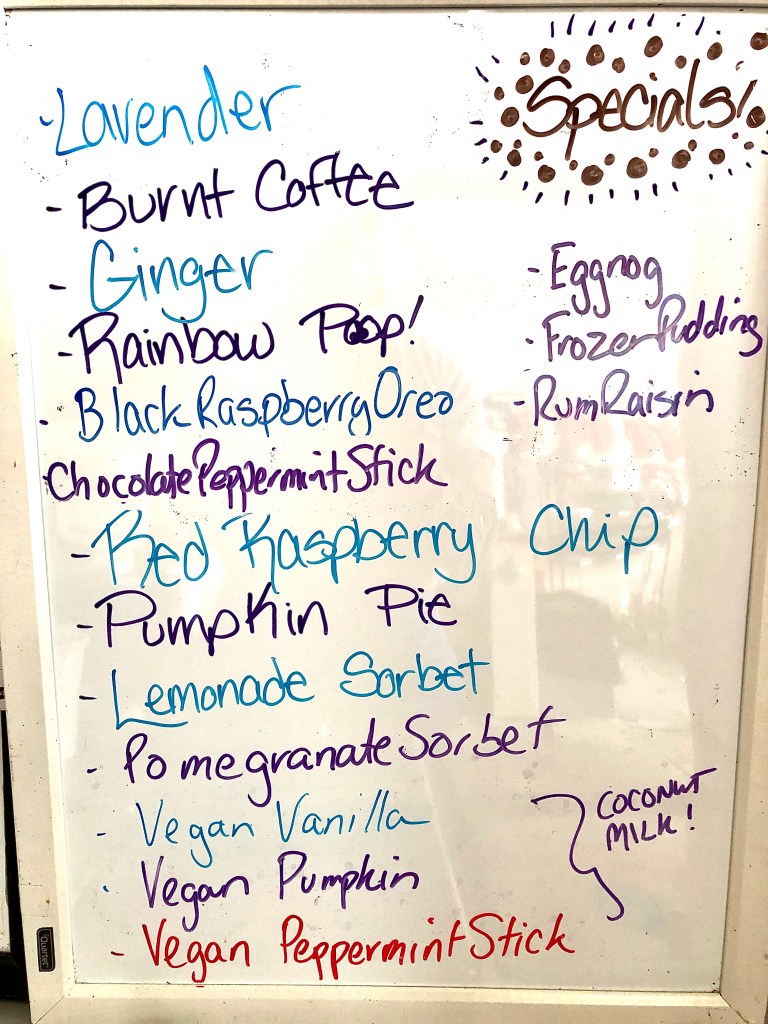 Specials!
- Lavender
- Burnt Coffee
- Ginger
- Rainbow Poop!
- Black Raspberry Oreo
- Chocolate Peppermint Stick
- Red Raspberry Chip
- Pumpkin Pie
- Lemonade Sorbet
- Pomegranate Sorbet
- Vegan Vanilla
- Vegan Pumpkin
- Vegan Peppermint Stick
- Eggnog
- Frozen Pudding
- Rum Raisin
COCONUT
MILK!
Quartet